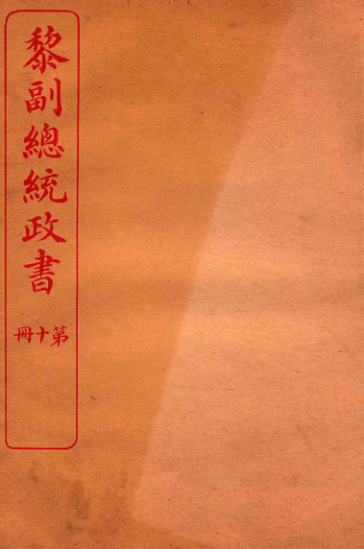 黎副總統政書
第十冊